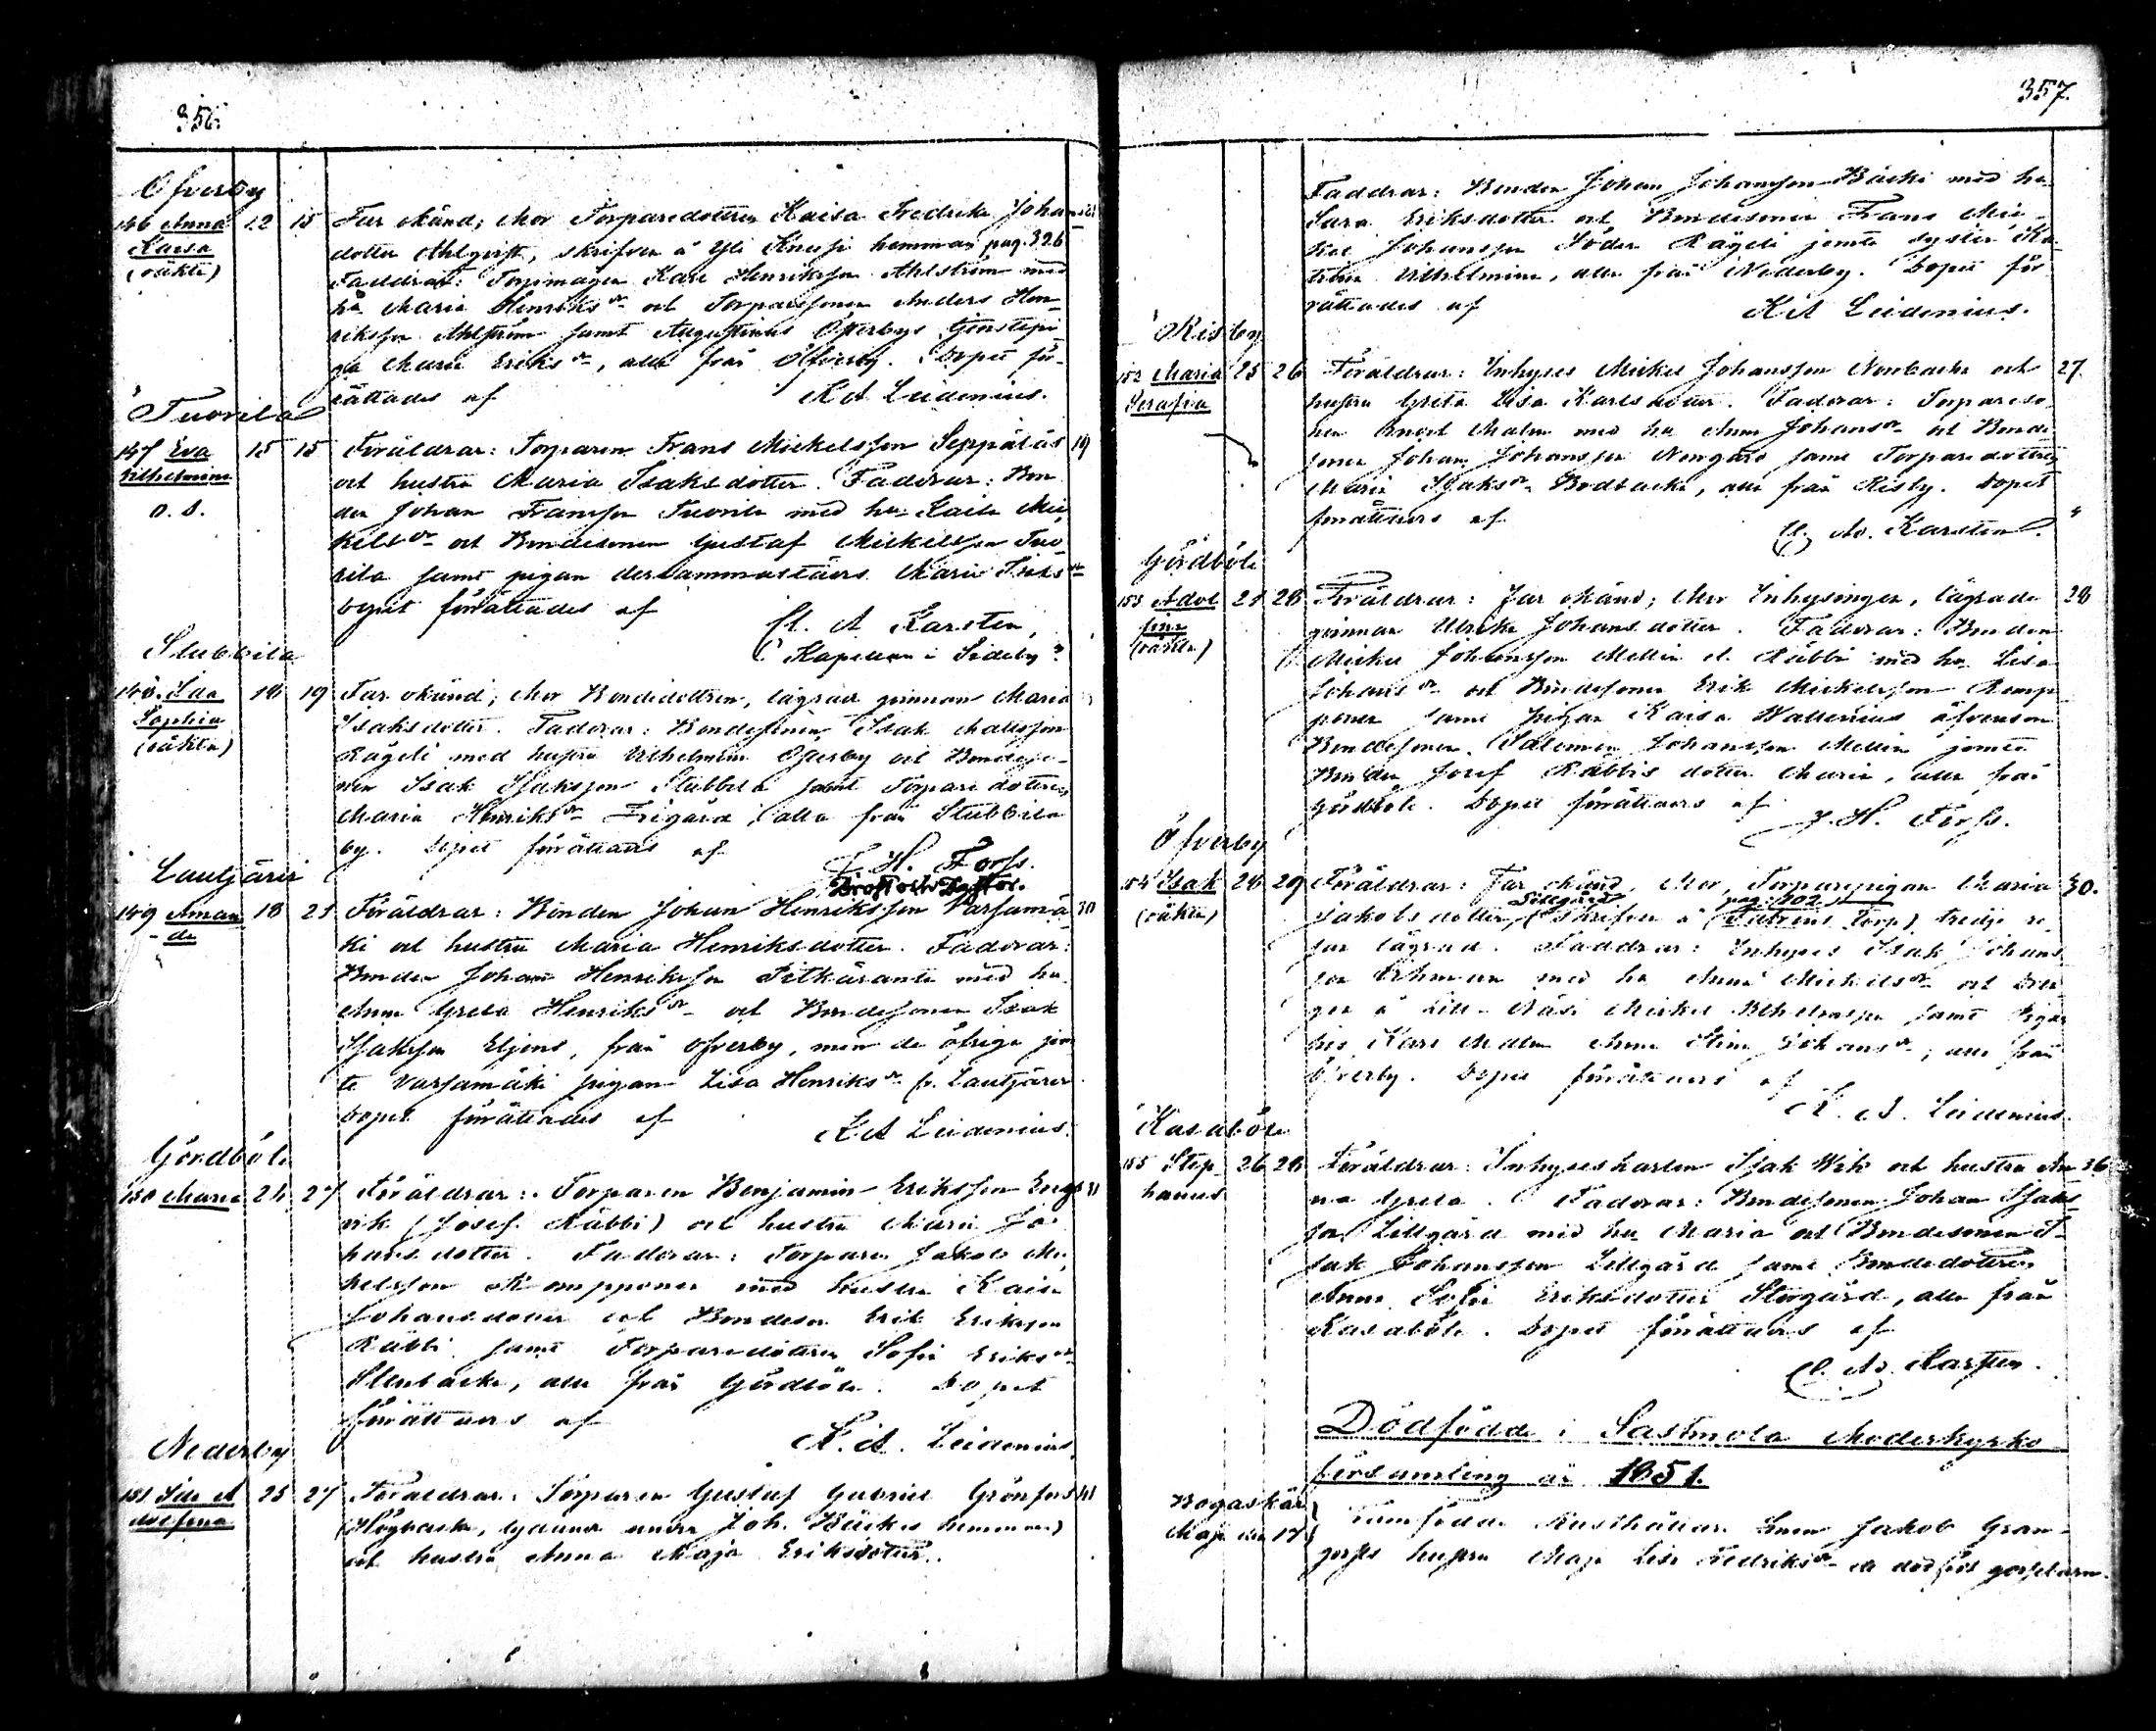 356.
Öfverby
146 Anna Kaisa (oäkta) 12 15 Far okänd; Mor Torparedottren Kaisa Fredrika Johans
dotter Ahlqvist, skrifven å Yli Knusi hemman pag. 326
Faddrar: Torpmågen Karl Henriksson Ahlström med
hu Maria Henriksdr och Torparesonen Anders Hen-
riksson Ahlström samt Augustinus Österbys tjenstepi-
ga Maria Eriksdr, alla från Öfverby. Dopet för-
rättades af K A Leidenius.
Tuorila
147 Eva Vilhelmina o. s. 15 15 Föräldrar: Torparen Frans Mickelsson Seppälüs 19
och hustru Maria Isaksdotter. Faddrar: Bon
den Johan Fransson Tuorila med hu Kaisa Mic
kelsdr och Bondesonen Gustaf Mickelsson Tuo
rila samt pigan dersammastädes Maria Isaksdr
Dopet förrättades af Cl. A Karsten,
Kapellan i Sideby
Stubbila
148. Ida Sophia (oäkta) 18 19 Far okänd; Mor Bondedottren, lägrad qvinnan Maria
Isaksdotter. Faddrar: Bondesonen Isak Matsson
Rägeli med hustru Vilhelmina Österby och Bondeso-
nen Isak Isaksson Stubbila samt Torparedottren
Maria Henriksdr Frigård, alla från Stubbila
by. Dopet förrättades af F. H. Forss.
Prost och Pastor.
Lautjärvi
149 Aman-da 18 23 Föräldrar: Bonden Johan Henriksson Varsamä- 30
ki och hustru Maria Henriksdotter. Faddrar:
Bonden Johan Henriksson Pitkäranta med hu
Anna Greta Henriksdr och Bondesonen Isak
Isaksson Eljens, från Öfverby, men de öfriga jem
te Varsamäki pigan Lisa Henriksdr fr. Lautjärvi
Dopet förrättades af K A Leidenius.
Gördböle
150 Maria 24 27 Föräldrar: Torparen Benjamin Eriksson Eng 31
vik (Josef Räbbi) och hustru Maria Jo
hansdotter. Faddrar: Torparen Jakob Mic
kelsson Kampponen med hustru Kaisa
Johansdotter och Bondeson Erik Eriksson
Räbbi samt Torparedottren Sofia Eriksdr
Stenbacka, alla från Gördböle. Dopet
förrättades af K. A. Leidenius
Nederby
151 Ida A dolfina 25 27 Föräldrar: Torparen Gustaf Gabriel Grönfors 41
(Högbacka, lydande under Joh. Bäckis hemman)
och hustru Anna Maja Eriksdotter.
357.
Faddrar: Bonden Johan Johansson Bäcki med hu
Sara Eriksdotter och Bondesonen Frans Mic-
kel Johansson Söder Rägeli jemte syster Ka-
trina Vilhelmina, alla från Nederby. Dopet för
rättades af K A Leidenius.
Risby
152 Maria Serafia 25 26 Föräldrar: Inhyses Mickel Johansson Norrbacka och 27.
hustru Greta Lisa Karlsdotter. Faddrar: Torpareso
nen Malm med hu Anna Johansdr och Bonde
sonen Johan Johansson Norrgård samt Torparedottren
Maria Isaksdr Brobacka, alla från Risby. Dopet
förrättades af Cl. Ad. Karsten.
Gördböle
153 Adol fina (oäkta) 21 28 Föräldrar: Far okänd; Mor Inhysingen, lägrade 28
qvinnan Ulrika Johansdotter. Faddrar: Bonden
Mickel Johansson Mellin el. Räbbi med hu Lisa
Johansdr och Bondesonen Erik Mickelsson Kamp
ponen samt Pigan Kaisa Wallenius äfvensom
Bondesonen Salomon Johansson Mellin jemte
Bonden Josef Räbbis dotter Maria, alla från
Gördböle. Dopet förrättades af F. H. Forss.
Öfverby
154 Isak (oäkta) 28 29 Föräldrar: Far okänd, Mor, Torparepigan Maria 30.
Jakobsdotter, (skrifven å Lillgård pag. 402 torp) tredje re-
san lägrad. Faddrar: Inhyses Isak Johans
son Öhman med hu Anna Mickelsdr och Drän
gen å Lill-Näsi Mickel samt Piga
hos Karl Malm Anna Stina Johansdr, alla från
Öfverby. Dopet förrättades af K. A. Leidenius.
Kasaböle
155 Step-hanus 26 28 Föräldrar: Inhyseskarlen Isak Wik och hustru An 36
na Greta. Faddrar: Bondesonen Johan Isaks
son Lillgård med hu Maria och Bondesonen I-
sak Johansson Lillgård samt Bondedottren
Anna Sofia Eriksdotter Storgård, alla från
Kasaböle. Dopet förrättades af
Cl. Ad. Karsten.
Dödfödde i Sastmola Moderkyrko
församling år 1851.
Bogaskär Maji den 17 Framfödde Rusthållare Jakob Gran-
qvists hustru Maja Lisa Fredriksdr ett dödfödt gossebarn.